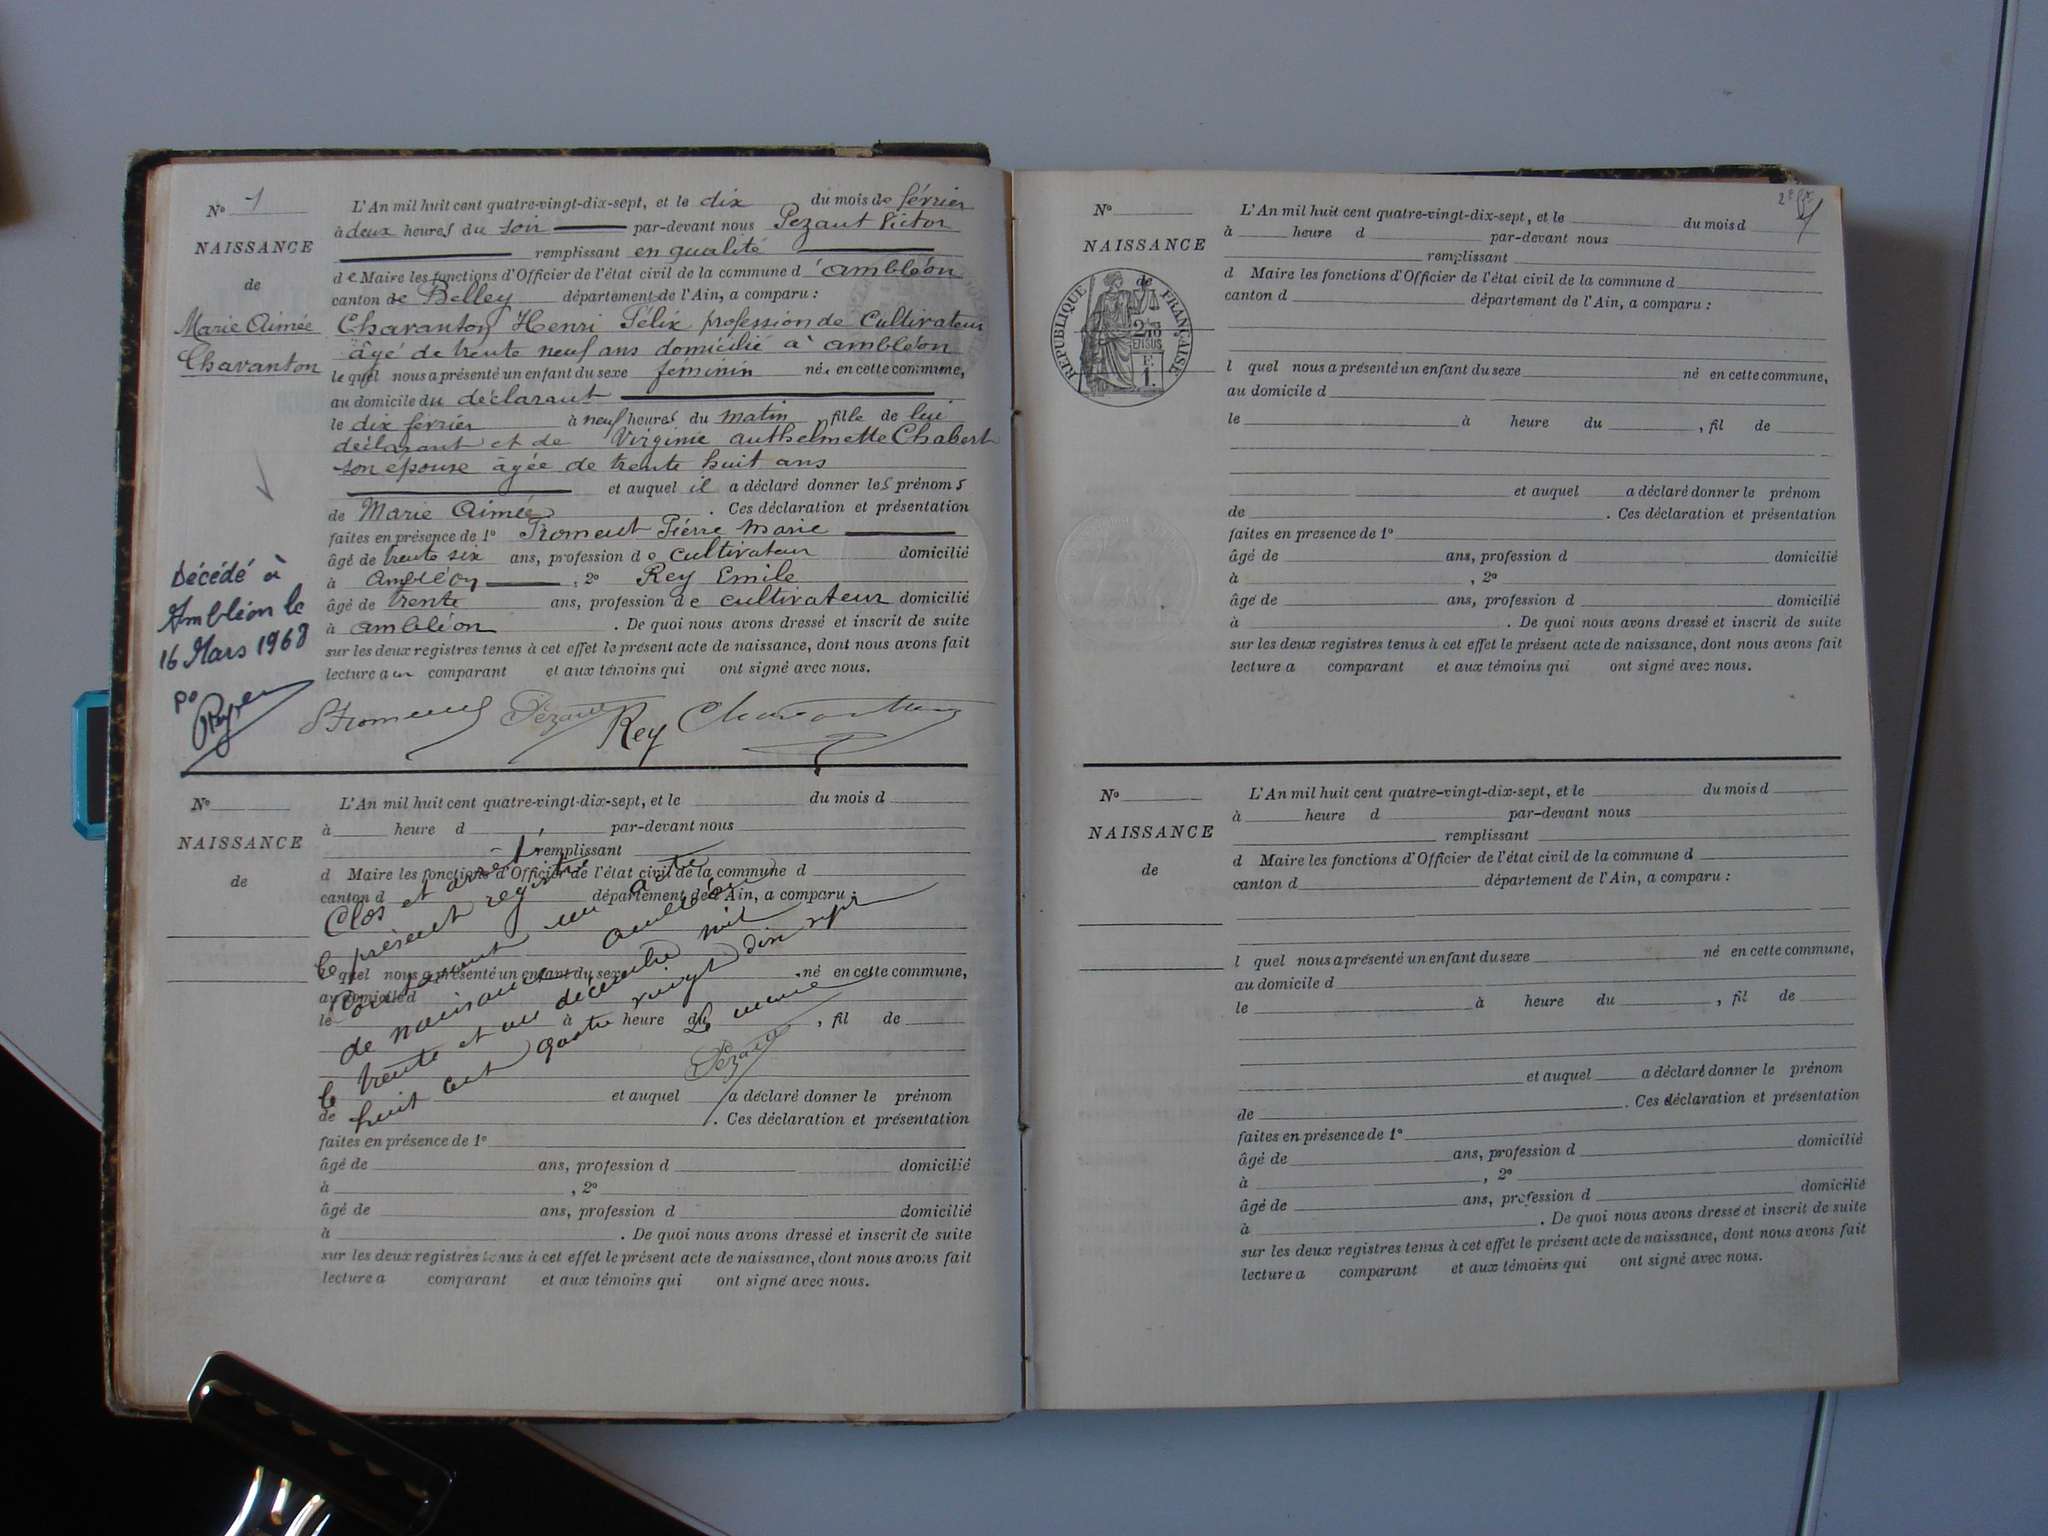 N° 1
NAISSANCE
de
Marie Aimée
Chavanton
L'An mil huit cent quatre-vingt-dix-sept, et le dix du mois de février
à deux heures du soir par-devant nous Pezant Victor
remplissant en qualité
de Maire les fonctions d'Officier de l'état civil de la commune d'ambléon
canton de Belley département de l'Ain, a comparu :
Chavanton Henri Félix profession de Cultivateur
âgé de trente neuf ans domicilié à ambléon
lequel nous a présenté un enfant du sexe feminin né. en cette commune,
au domicile du déclarant
le dix février à neuf heures du matin, fille de lui
déclarant et de Virginie anthelmette Chabert
son épouse âgée de trente huit ans
et auquel il a déclaré donner les prénoms
de Marie Aimée. Ces déclaration et présentation
faites en présence de 1° Froment Piérre Marie
âgé de trente six ans, profession de cultivateur domicilié
à Ambléon, 2° Rey Emile
âgé de trente ans, profession de cultivateur domicilié
à ambléon. De quoi nous avons dressé et inscrit de suite
sur les deux registres tenus à cet effet le présent acte de naissance, dont nous avons fait
lecture au comparant et aux témoins qui ont signé avec nous.
Décédé à
Ambléon le
16 Mars 1968
po
Froment Pézant Rey Chavanton
N°
NAISSANCE
de
L'An mil huit cent quatre-vingt-dix-sept, et le du mois d
à heure d par-devant nous
remplissant
d Maire les fonctions d'Officier de l'état civil de la commune d
canton d département de l'Ain, a comparu :
l quel nous a présenté un enfant du sexe né en cette commune,
au domicile d
le à heure du , fil de
et auquel a déclaré donner le prénom
de . Ces déclaration et présentation
faites en présence de 1°
âgé de ans, profession d domicilié
à , 2°
âgé de ans, profession d domicilié
à . De quoi nous avons dressé et inscrit de suite
sur les deux registres tenus à cet effet le présent acte de naissance, dont nous avons fait
lecture a comparant et aux témoins qui ont signé avec nous.
Clos et arrêté
le présent registre
contenant un acte
de naissance ambléon
le trente et un décembre mil
huit cent quatre vingt dix sept
Le maire
Pézant
N°
NAISSANCE
de
RÉPUBLIQUE FRANÇAISE
2/10
EN SUS
F.
1.
L'An mil huit cent quatre-vingt-dix-sept, et le du mois d
à heure d par-devant nous
remplissant
d Maire les fonctions d'Officier de l'état civil de la commune d
canton d département de l'Ain, a comparu :
l quel nous a présenté un enfant du sexe né en cette commune,
au domicile d
le à heure du , fil de
et auquel a déclaré donner le prénom
de . Ces déclaration et présentation
faites en présence de 1°
âgé de ans, profession d domicilié
à , 2°
âgé de ans, profession d domicilié
à . De quoi nous avons dressé et inscrit de suite
sur les deux registres tenus à cet effet le présent acte de naissance, dont nous avons fait
lecture a comparant et aux témoins qui ont signé avec nous.
N°
NAISSANCE
de
L'An mil huit cent quatre-vingt-dix-sept, et le du mois d
à heure d par-devant nous
remplissant
d Maire les fonctions d'Officier de l'état civil de la commune d
canton d département de l'Ain, a comparu :
l quel nous a présenté un enfant du sexe né en cette commune,
au domicile d
le à heure du , fil de
et auquel a déclaré donner le prénom
de . Ces déclaration et présentation
faites en présence de 1°
âgé de ans, profession d domicilié
à , 2°
âgé de ans, profession d domicilié
à . De quoi nous avons dressé et inscrit de suite
sur les deux registres tenus à cet effet le présent acte de naissance, dont nous avons fait
lecture a comparant et aux témoins qui ont signé avec nous.